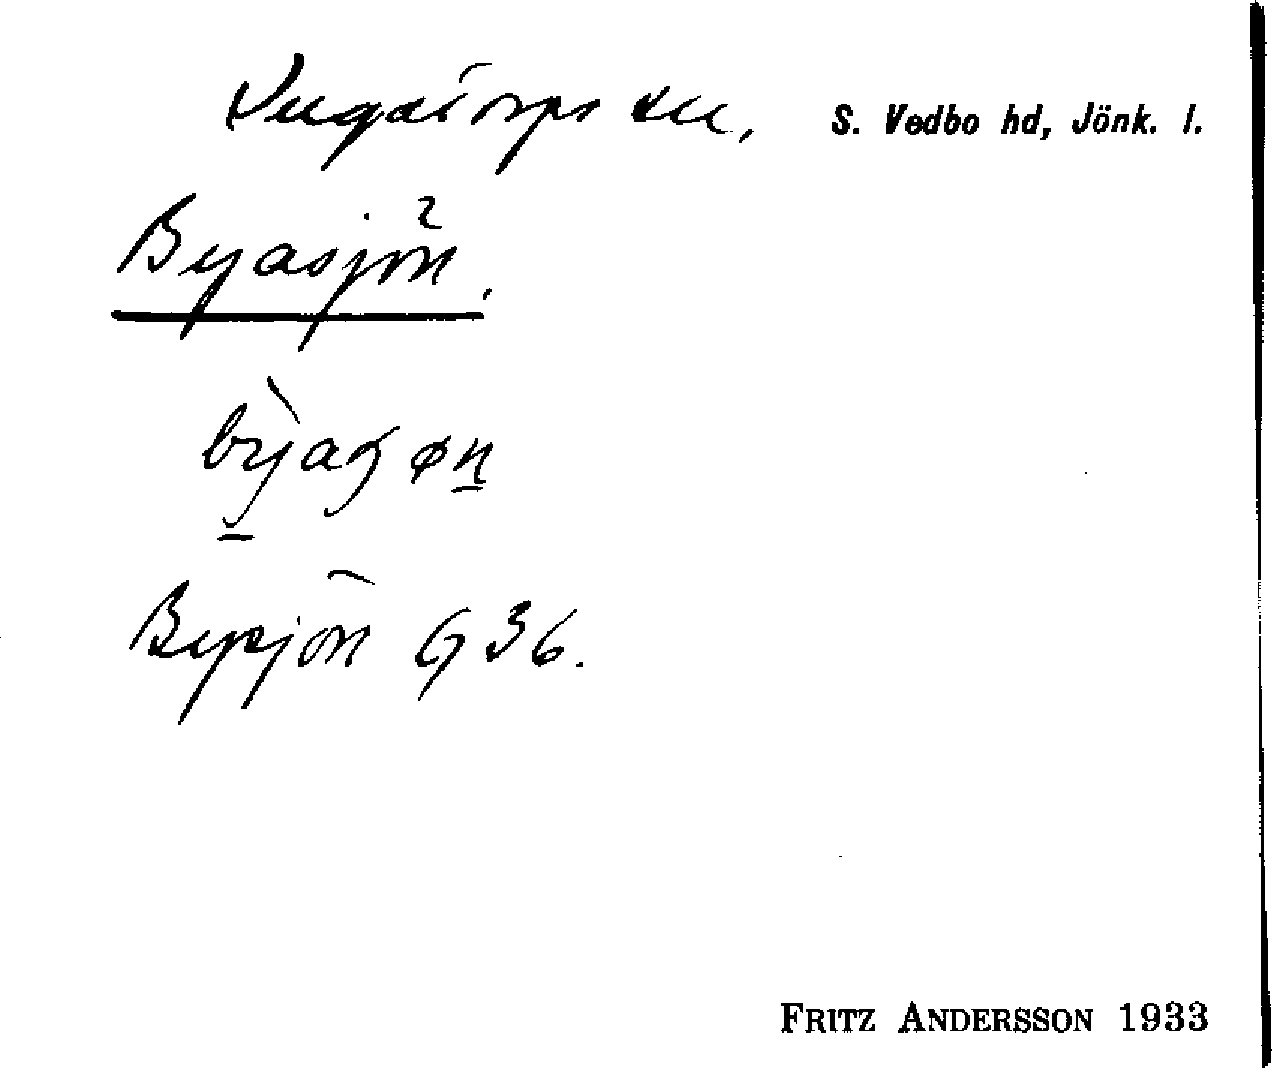 Ingatorps sn, S. Vedbo hd, Jönk. l.
Byasjön.
bỳaʃøn
Bysjön G 36.
FRITZ ANDERSSON 1933